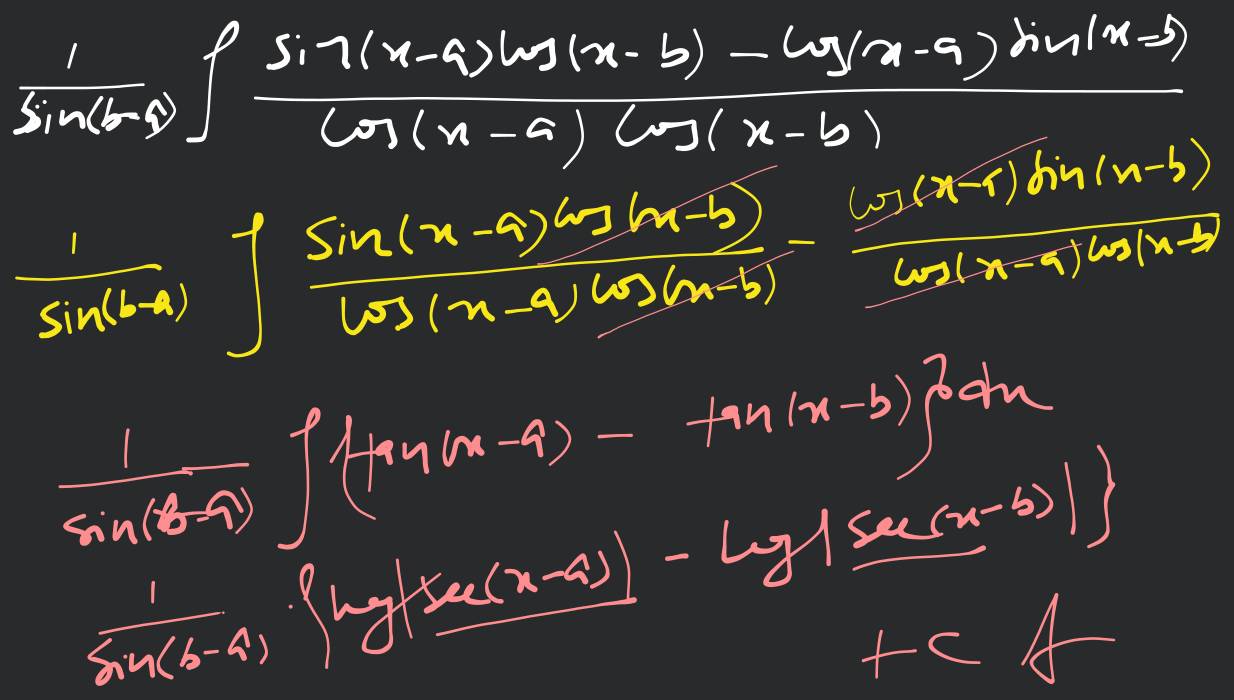 1/sin(b-a) ∫ (sin(x-a)cos(x-b) - cos(x-a)sin(x-b)) / (cos(x-a) cos(x-b))
1/sin(b-a) ∫ (sin(x-a)cos(x-b)) / (cos(x-a)cos(x-b)) - (cos(x-a)sin(x-b)) / (cos(x-a)cos(x-b))
1/sin(b-a) ∫ {tan(x-a) - tan(x-b)} dx
1/sin(b-a) · {log|sec(x-a)| - log|sec(x-b)|}
+ c